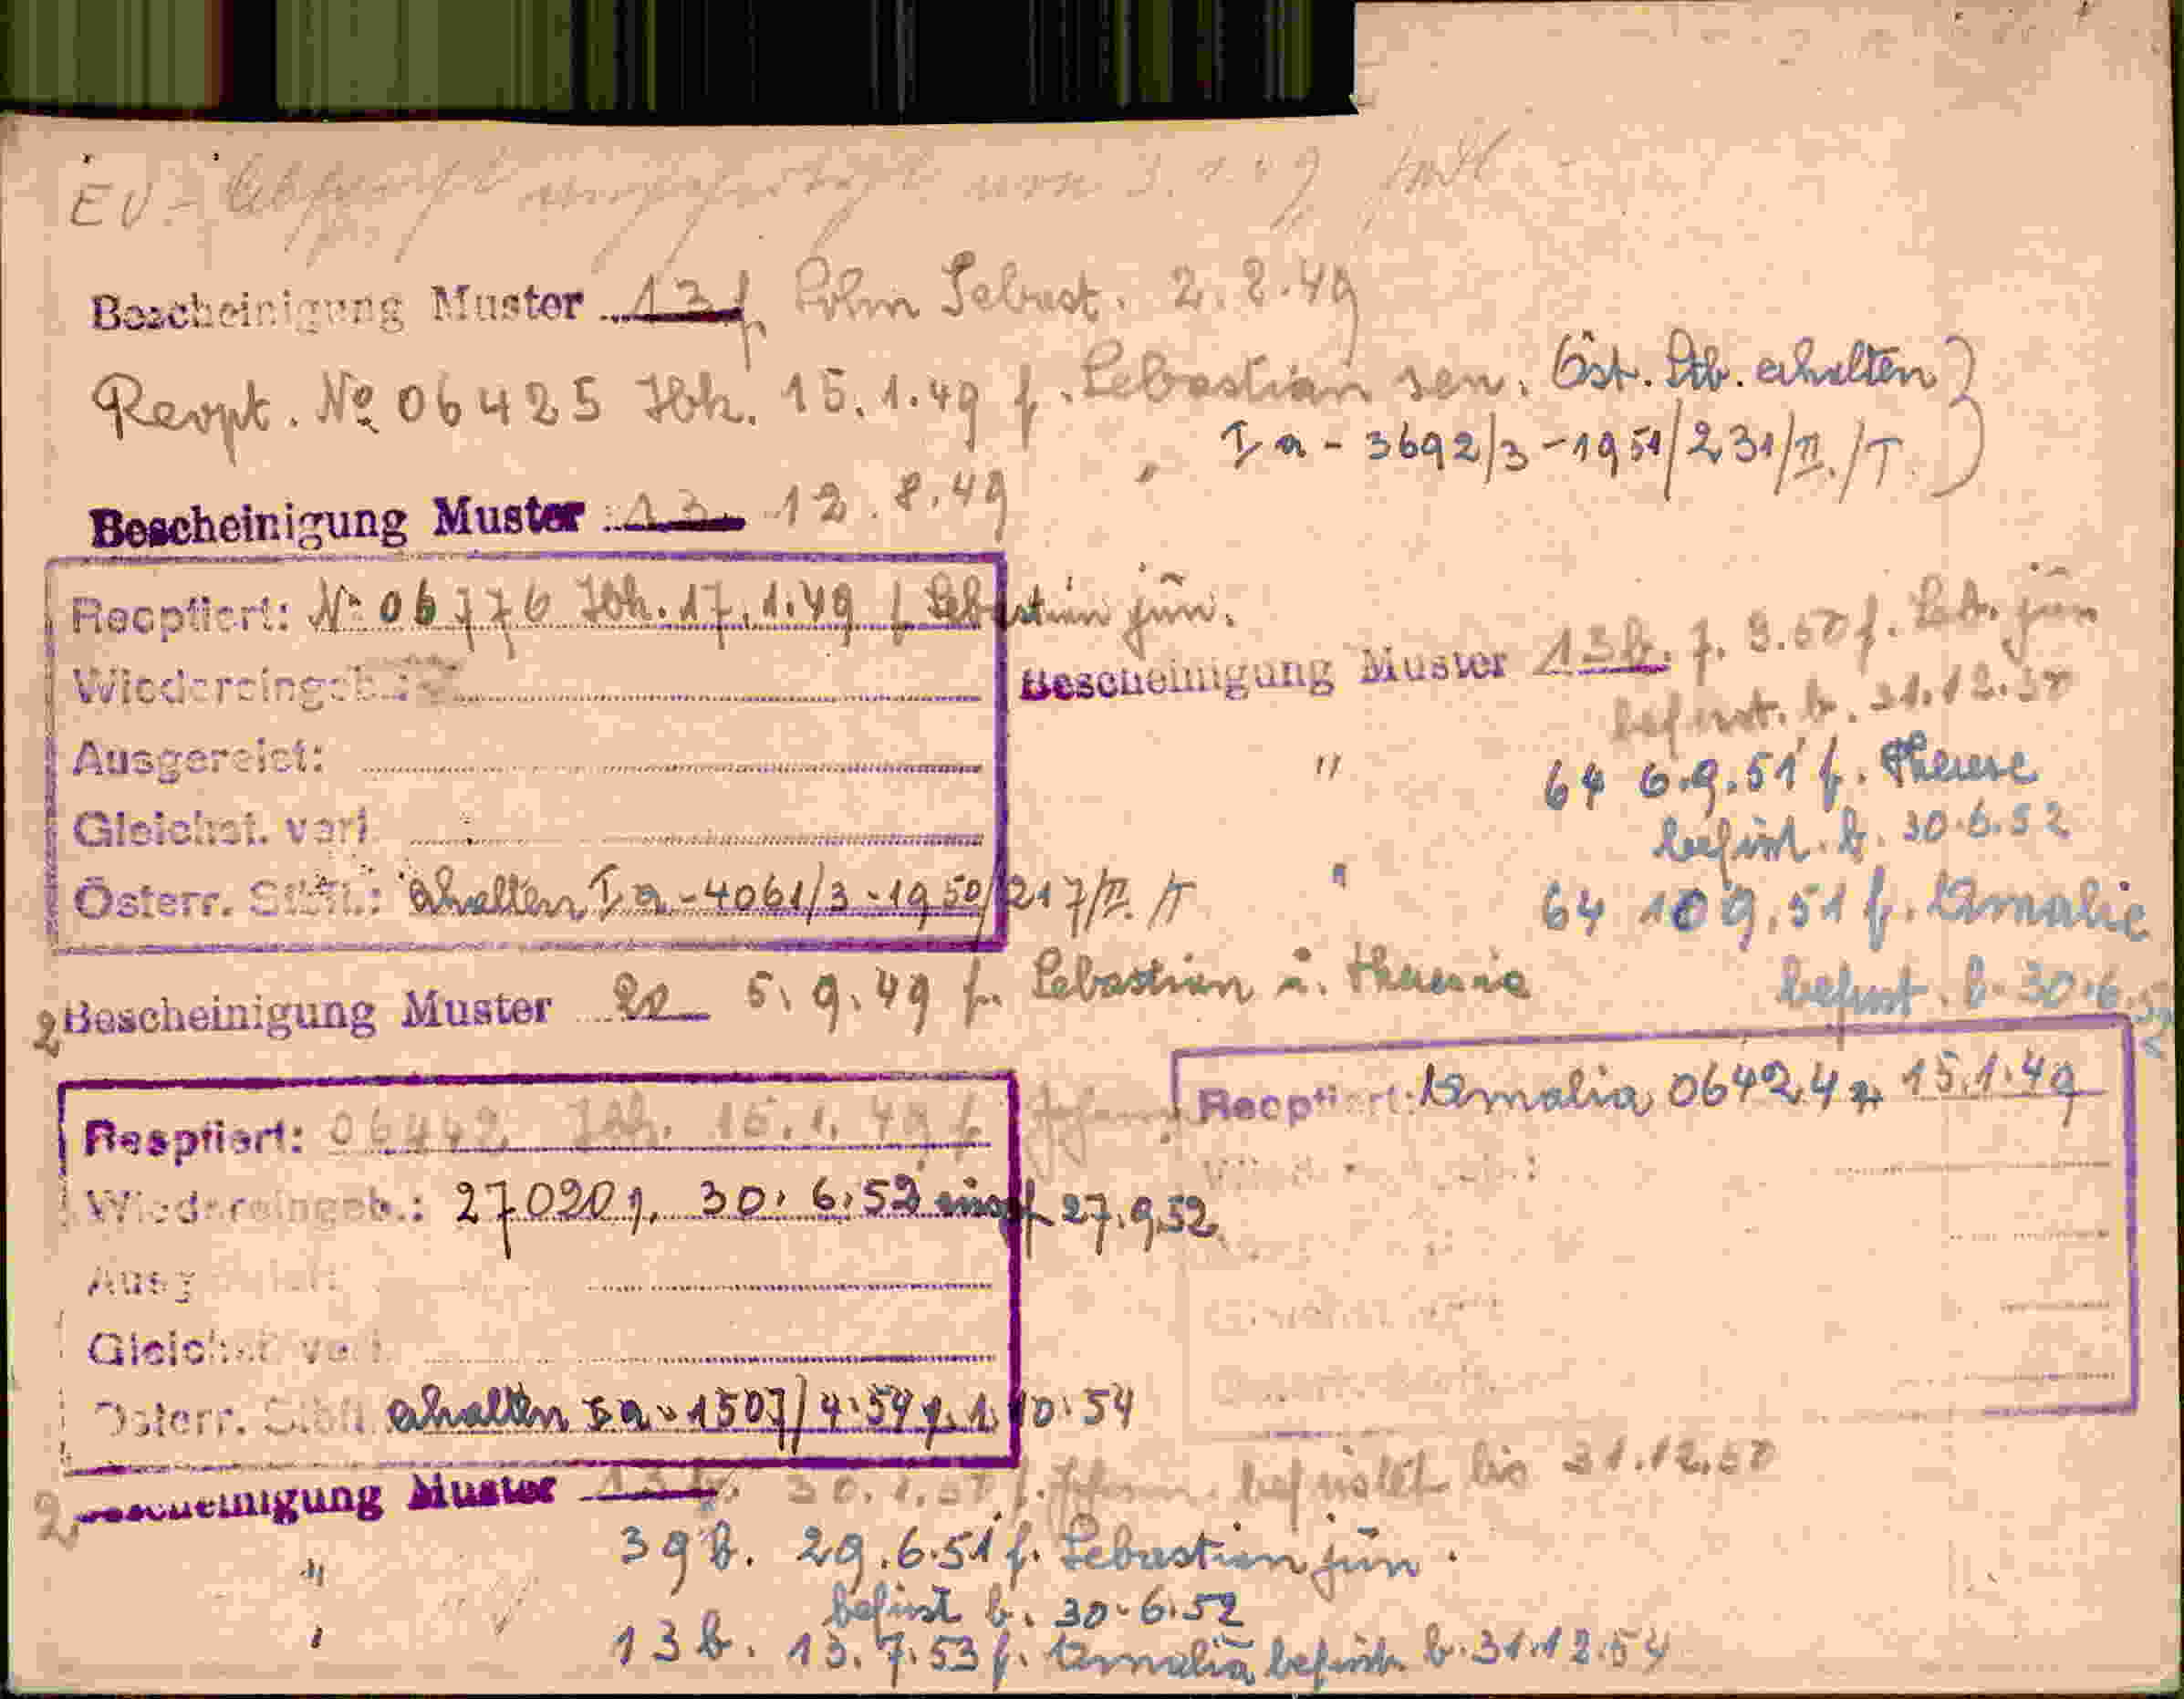 EV-
Bescheinigung Muster 13 f. Sohn Sebast. 2.8.49
Reopt. № 06425 Ibk. 15.1.49 f. Sebastian sen. Öst. Stb. erhalten
I a - 3692/3-1951/231/II./T.
Bescheinigung Muster 13. 12.8.49
Reoptiert: № 06776 Ibk. 17.1.49 f. Sebastian jun.
Wiedereingeb.:
Ausgereist:
Gleichst. verl.
Österr. Stbt.: erhalten I a-4061/3-1950/217/II./T
Bescheinigung Muster 13b. 7. 9.50 f. Seb. jun
befrist. b. 31.12.50
" 64 6.9.51 f. Therese
befrist. b. 30.6.52
" 64 10 9.51 f. Amalie
befrist. b. 30.6.52
2 Bescheinigung Muster 20 5.9.49 f. Sebastian u. Theresia
Reoptiert: 06442 Ibk. 15.1.49 f.
Wiedereingeb.: 27020 30.6.52 27.9.52
Ausgereist:
Gleichst. verl.
Österr. Stbt. erhalten I a-1507/4-54 1.10.54
Reoptiert: Amalia 06424 15.1.49
2. Bescheinigung Muster 13b. 30.1.50 f. befristet bis 31.12.50
" 39b. 29.6.51 f. Sebastian jun.
befrist b. 30.6.52
" 13b. 13.7.53 f. Amalia befrist. b. 31.12.54